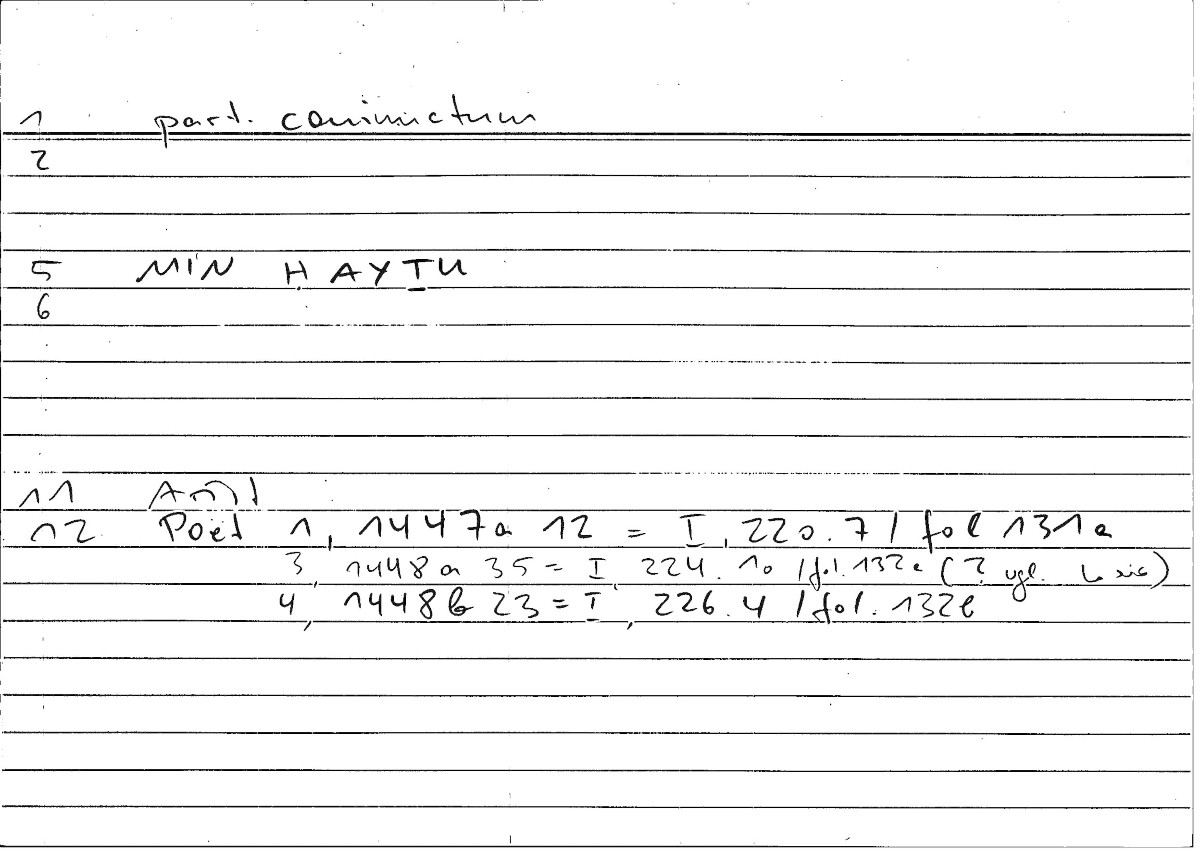 1 part. coniunctum
2
5 MIN ḤAYṮU
6
11 Arist
12 Poet 1, 1447a 12 = I, 220.7 / fol 131a
3, 1448a 35 = I, 224.10 / fol. 132a (? vgl.
4, 1448b 23 = I, 226.4 / fol. 132b